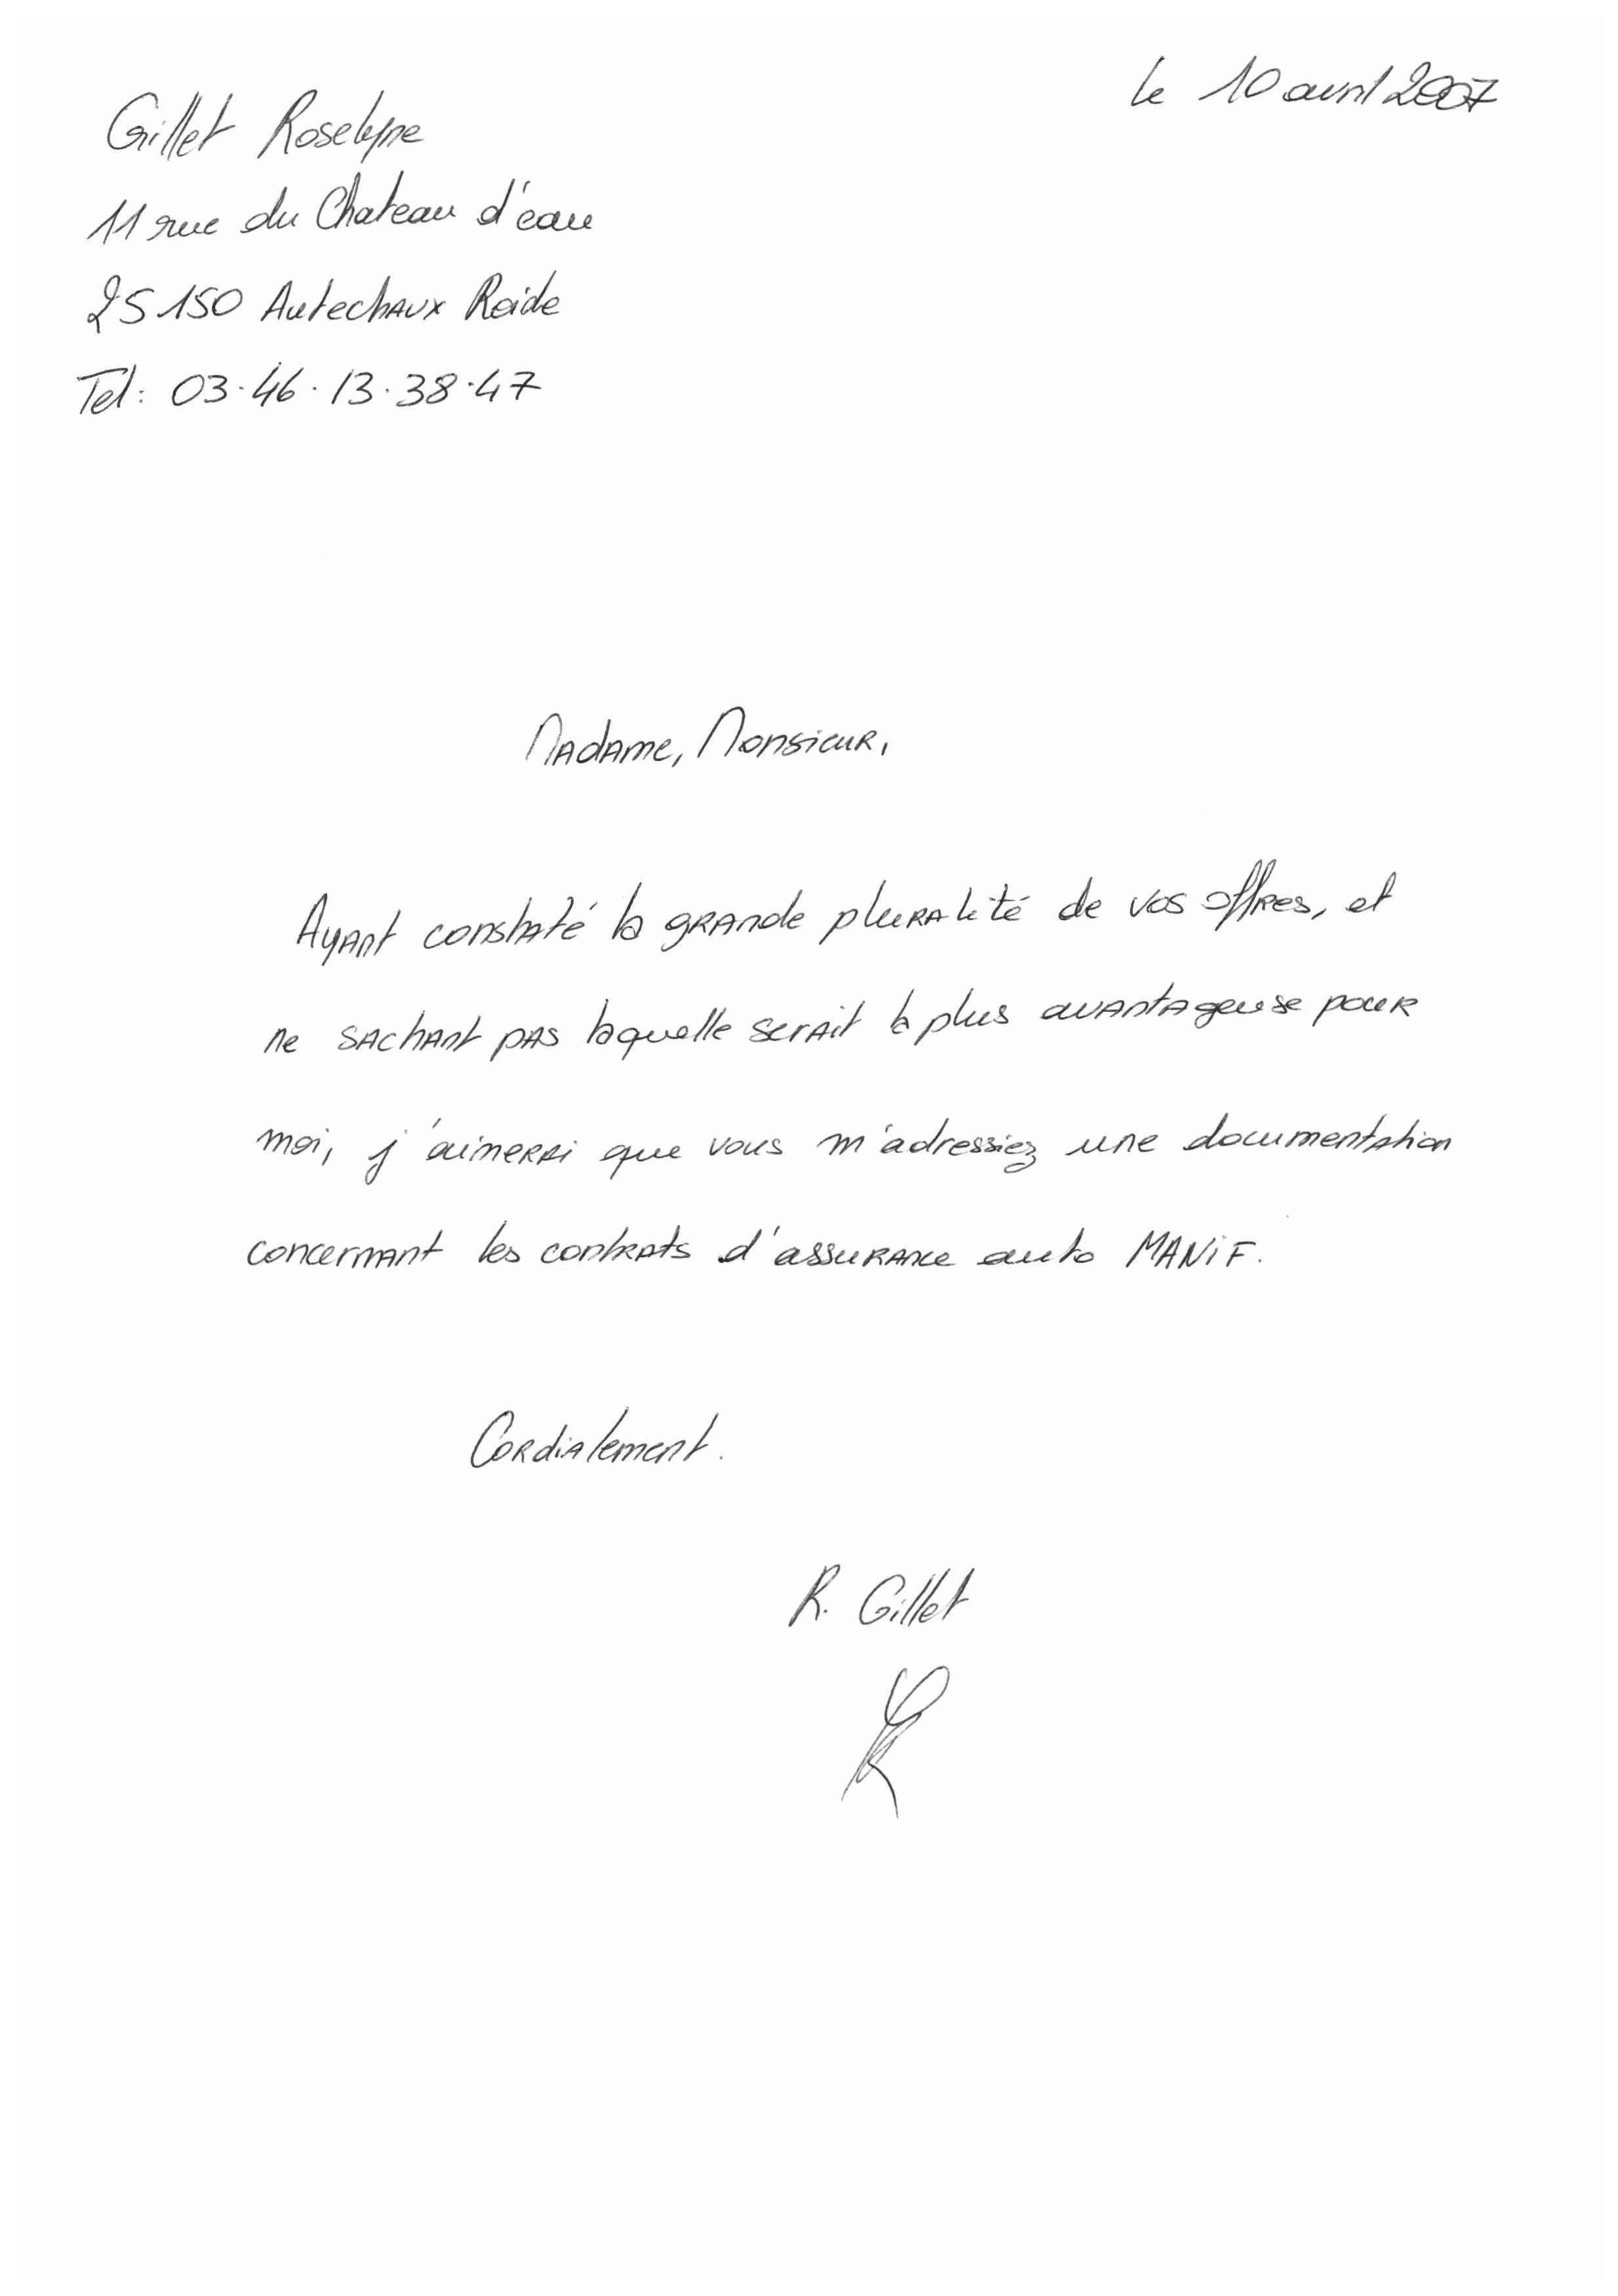 le 10 avril 2007
Gillet Roselyne
11 rue du Chateau d'eau
25150 Autechaux Roide
Tel: 03.46.13.38.47
Madame, Monsieur,
Ayant constaté la grande pluralité de vos offres, et
ne sachant pas laquelle serait la plus avantageuse pour
moi, j'aimerai que vous m'adressiez une documentation
concernant les contrats d'assurance auto MANiF.
Cordialement.
R. Gillet